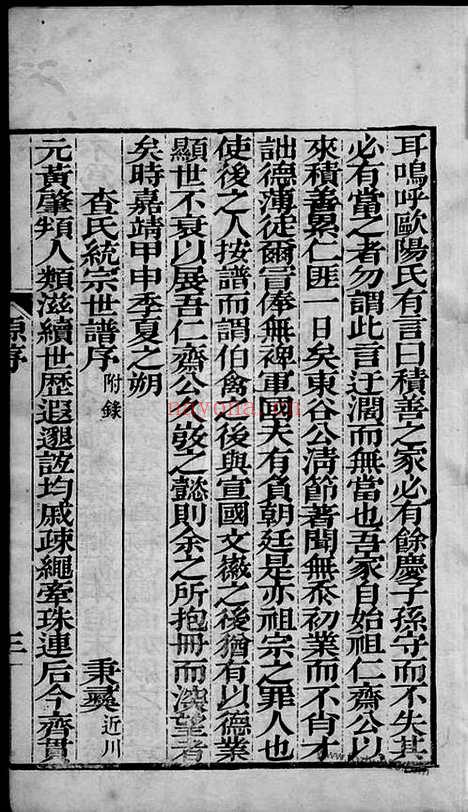 耳嗚呼歐陽氏有言曰積善之家必有餘慶子孫守而不失其
必有當之者勿謂此言迂濶而無當也吾家自始祖仁齋公以
來積善累仁匪一日矣東谷公清節著聞無忝初業而不肖才
詘德薄徒爾冒俸無裨軍國大有負朝廷是亦祖宗之罪人也
使後之人按譜而謂伯禽之後與宣國文徽之後猶有以德業
顯世不衰以展吾仁齋公火敚之懿則余之所抱冊而深望者
矣時嘉靖甲申季夏之朔
查氏統宗世譜序 附錄 秉彝 近川
元黃肇𩔖人類滋續世歷遐邈誼均戚疎繩牽珠連后今齊貫
原序
三